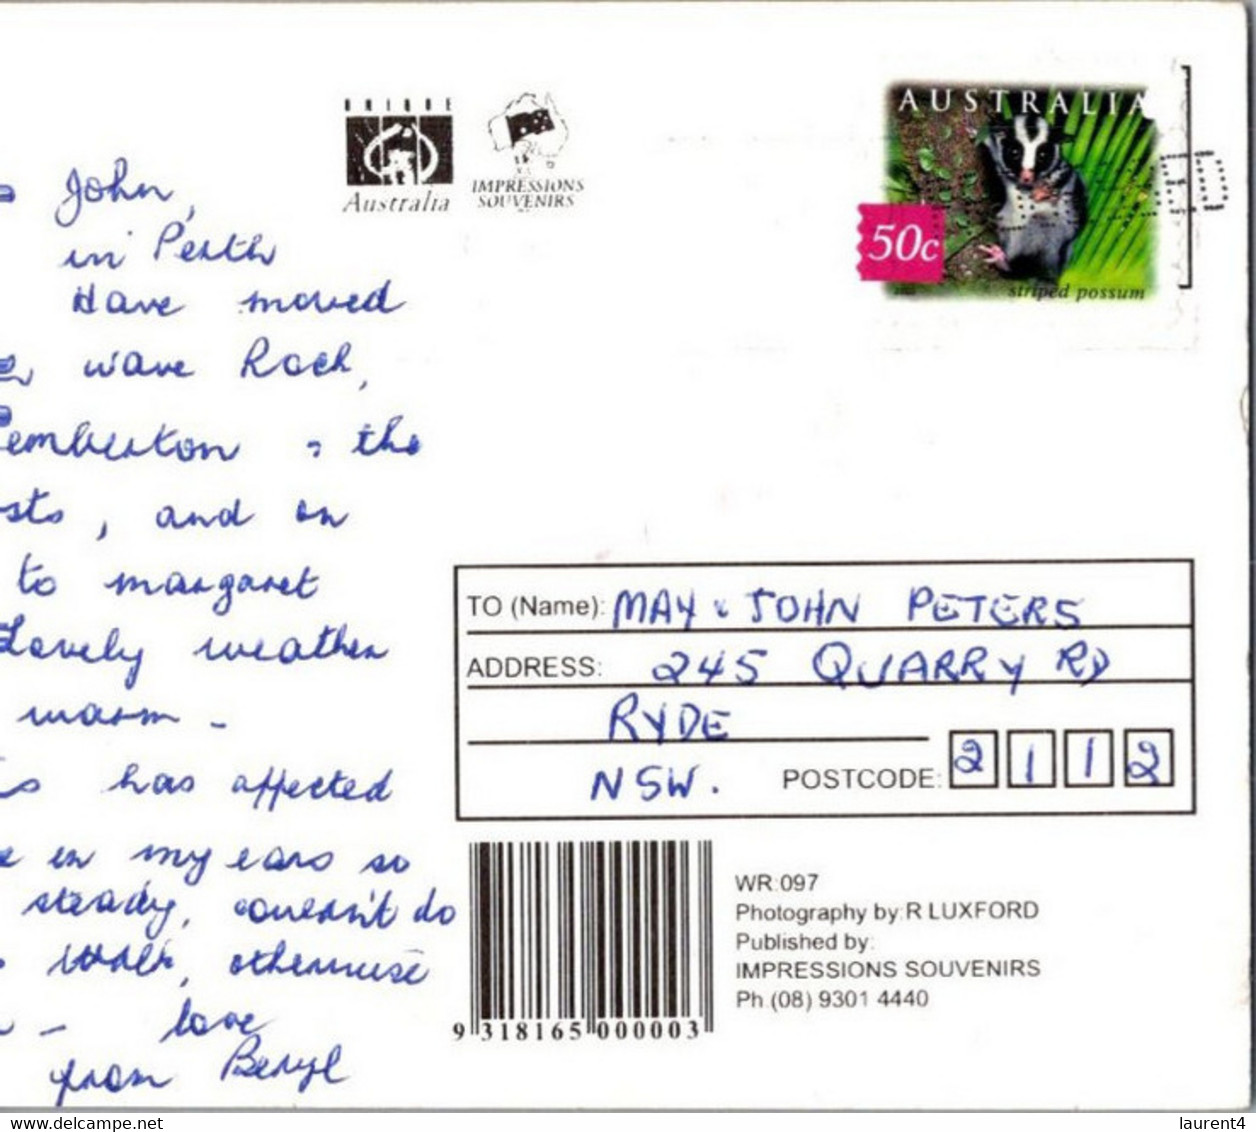 John,
in Perth
Have moved
wave Rock,
Pemberton & the
sts, and on
to margaret
Lovely weather
warm -
has affected
in my ears so
steady, couldn't do
walk, otherwise
- love
from Beryl
UNIQUE
Australia
IMPRESSIONS
SOUVENIRS
AUSTRALIA
50c
striped possum
TO (Name): MAY & JOHN PETERS
ADDRESS: 245 QUARRY RD
RYDE
NSW. POSTCODE: 2112
9 318165 000003
WR:097
Photography by: R LUXFORD
Published by:
IMPRESSIONS SOUVENIRS
Ph (08) 9301 4440
laurent4